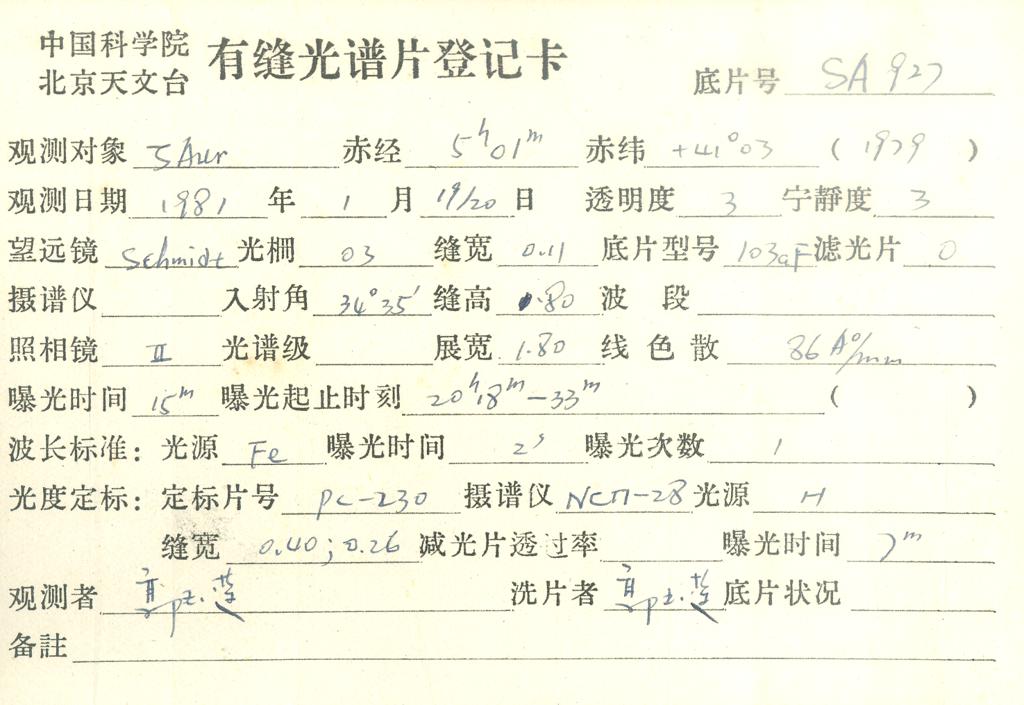 中国科学院
北京天文台
有缝光谱片登记卡
底片号 SA 927
观测对象 ζ Aur 赤经 5ʰ01ᵐ 赤纬 +41°03 ( 1979 )
观测日期 1981 年 1 月 19/20 日 透明度 3 宁静度 3
望远镜 Schmidt 光栅 03 缝宽 0.11 底片型号 103aF 滤光片 0
摄谱仪 入射角 34°35′ 缝高 1.80 波段
照相镜 II 光谱级 展宽 1.80 线色散 Å/mm
曝光时间 15ᵐ 曝光起止时刻 20ʰ18ᵐ-33ᵐ ( )
波长标准: 光源 Fe 曝光时间 2ˢ 曝光次数 1
光度定标: 定标片号 PC-230 摄谱仪 ИСП-28 光源 H
缝宽 0.40; 0.26 减光片透过率 曝光时间 7ᵐ
观测者 洗片者 底片状况
备註